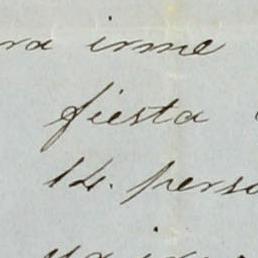 ra irme
fiesta
14. perso